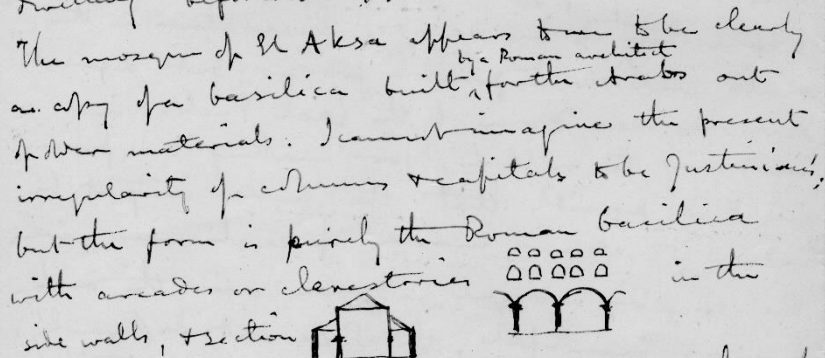 The mosque of El Aksa appears to me to be clearly
by a Roman architect
a copy of a basilica built ^ for the Arabs out
of older materials. I cannot imagine the present
irregularity of columns & capitals to be Justinian's,
but the form is purely the Roman basilica
with arcades or clerestories in the
side walls, & section